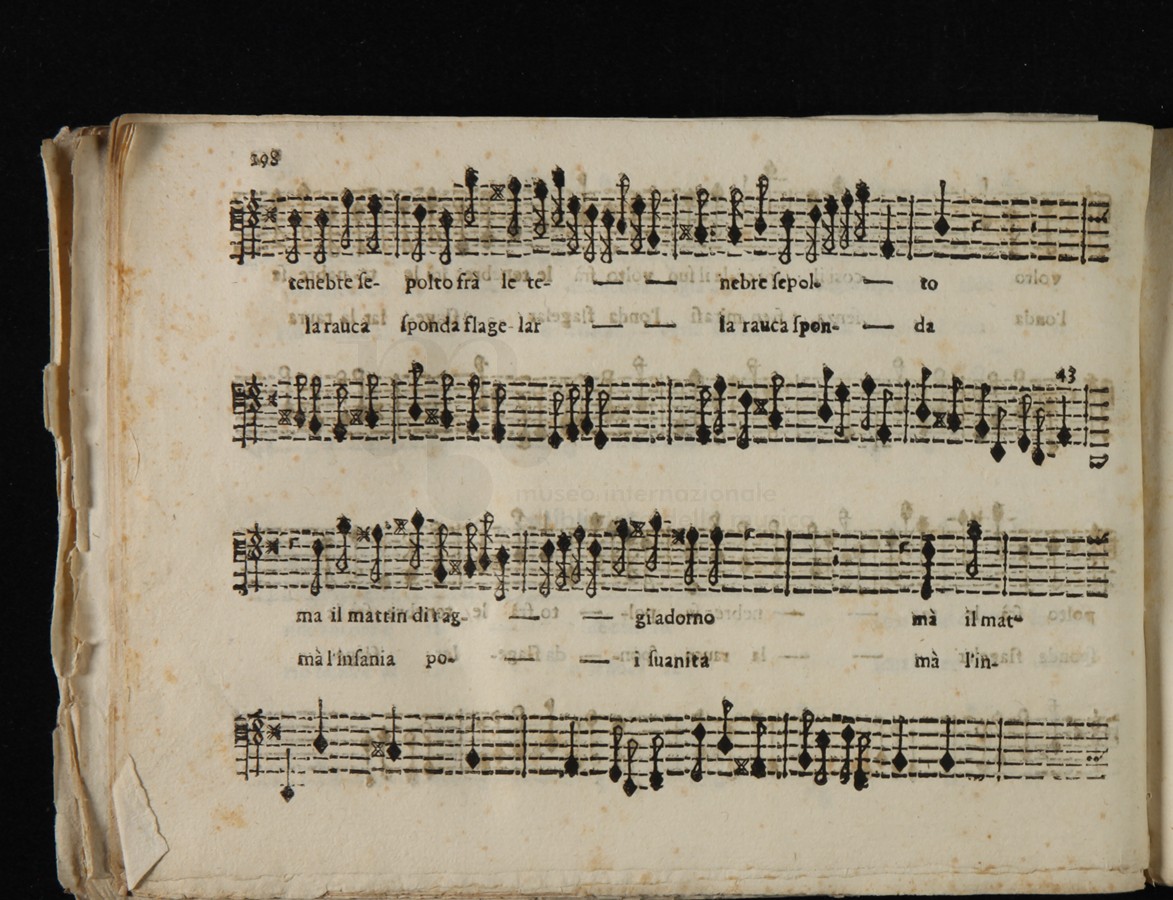 198
tenebre ſe- polto frà le te- — — nebre ſepol- — to
la rauca ſponda flage-lar — — la rauca ſpon- — da
43
ma il mattin di rag- — — gi adorno mà il mat-
mà l'inſania po- — — i ſuanita mà l'in-
museo internazionale